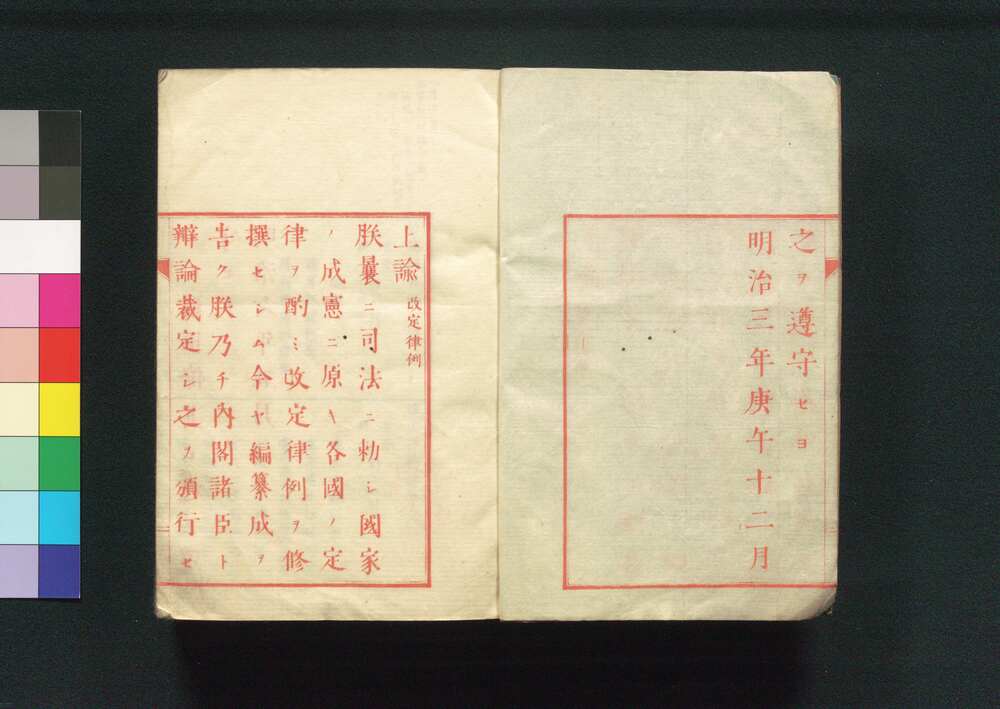 之ヲ遵守セヨ
明治三年庚午十二月
上諭 改定律例
朕曩ニ司法ニ勅シ國家
ノ成憲ニ原キ各國ノ定
律ヲ酌ミ改定律例ヲ修
撰セシム今ヤ編纂成ヲ
告ク朕乃チ內閣諸臣ト
辯論裁定シ之ヲ頒行セ